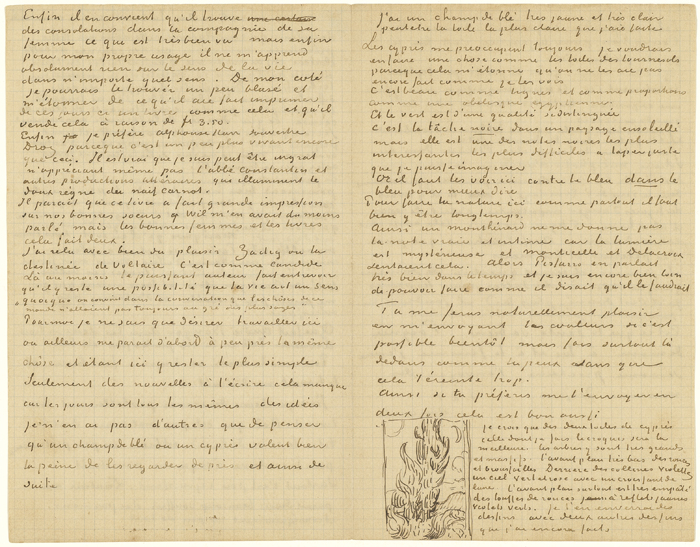 Enfin il en convient qu'il trouve
des consolations dans la compagnie de sa
femme ce qui est très bien vu mais enfin
pour mon propre usage il ne m'apprend
absolument rien sur le sens de la vie
dans n'importe quel sens. De mon coté
je pourrais le trouver un peu blasé et
m'étonner de ce qu'il aie fait imprimer
de ces jours ci un livre comme cela et qu'il
vende cela à raison de fr 3.50.
Enfin je préfère alphonse Karr souvestre
Droz parceque c'est un peu plus vivant encore
que ceci. Il est vrai que je suis peut être ingrat
n'appreciant même pas l'abbé constantin et
autres productions littéraires que illuminent le
doux règne du naïf Carnot.
Il parait que ce livre a fait grande impression
sur nos bonnes soeurs Wil m'en avait du moins
parlé mais les bonnes femmes et les livres
cela fait deux.
J'ai relu avec bien du plaisir Zadig ou la
destinée de Voltaire C'est comme candide
Là au moins le puissant auteur fait entrevoir
qu'il y reste une possibilité que la vie ait un sens
"quoique on convint dans la conversation que les choses de ce
monde n'allaient pas toujours au gré des plus sages"
Pour moi je ne sais que désirer travailler ici
ou ailleurs me parait d'abord à peu près la même
chose et étant ici y rester le plus simple
Seulement des nouvelles à t'écrire cela manque
car les jours sont tous les mêmes des idées
je n'en ai pas d'autres que de penser
qu'un champ de blé ou un cyprès valent bien
la peine de les regarder de près et ainsi de
suite
J'ai un champ de blé très jaune et très clair
peut être la toile la plus claire que j'aie faite
Les cyprès me preoccupent toujours je voudrais
en faire une chose comme les toiles des tournesols
parceque cela m'étonne qu'on ne les ait pas
encore fait comme je les vois
C'est beau comme lignes et comme proportions
comme une obelisque egyptienne
Et le vert est d'une qualité si distinguée
c'est la tâche noire dans un paysage ensoleillé
mais elle est une des notes noires les plus
interessantes les plus difficiles à taper juste
que je puisse imaginer
Or il faut les voir ici contre le bleu dans le
bleu pour mieux dire
Pour faire la nature ici comme partout il faut
bien y être longtemps.
Ainsi un monthénard ne me donne pas
la note vraie et intime car la lumière
est mystérieuse et monticelli et Delacroix
sentaient cela. Alors Pissarro en parlait
très bien dans le temps et je suis encore bien loin
de pouvoir faire comme il disait qu'il le faudrait
Tu me feras naturellement plaisir
en m'envoyant les couleurs si c'est
possible bientôt mais fais surtout là
dedans comme tu peux sans que
cela t'éreinte trop.
Ainsi si tu préfères me l'envoyer en
deux fois cela est bon aussi
je crois que des deux toiles de cyprès
celle dont je fais le croquis sera la
meilleure. les arbres y sont très grands
et massifs. l'avant plan très bas des ronces
et broussailles Derrière des collines violettes
un ciel vert et rose avec un croissant de
lune. L'avant plan surtout est très empaté
des touffes de ronces à reflets jaunes
violets verts. je t'en enverrai des
dessins avec deux autres dessins
que j'ai encore faits